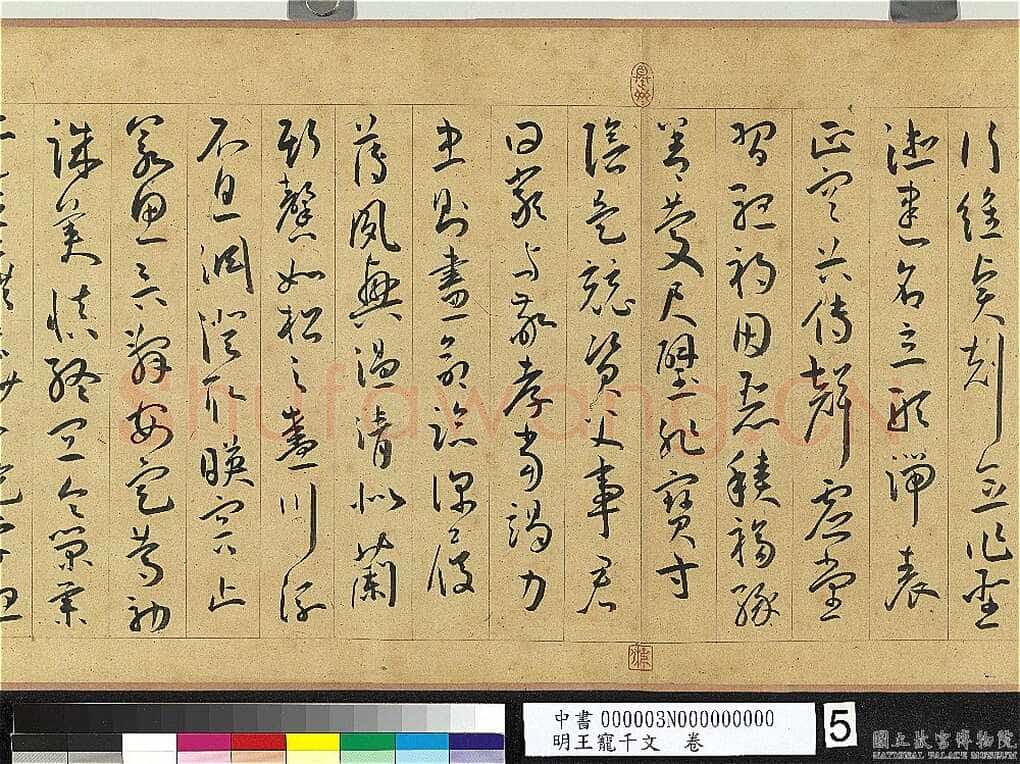 行維賢剋念作聖
德建名立形端表
正空谷傳聲虛堂
習聽禍因惡積福緣
善慶尺璧非寶寸
陰是競資父事君
曰嚴與敬孝當竭力
忠則盡命臨深履
薄夙興溫清似蘭
斯馨如松之盛川流
不息淵澄取暎容止
若思言辭安定篤初
誠美慎終宜令榮業
Shufawang.CN
中書 000003N000000000
明王寵千文 卷
5
國立故宮博物院
NATIONAL PALACE MUSEUM